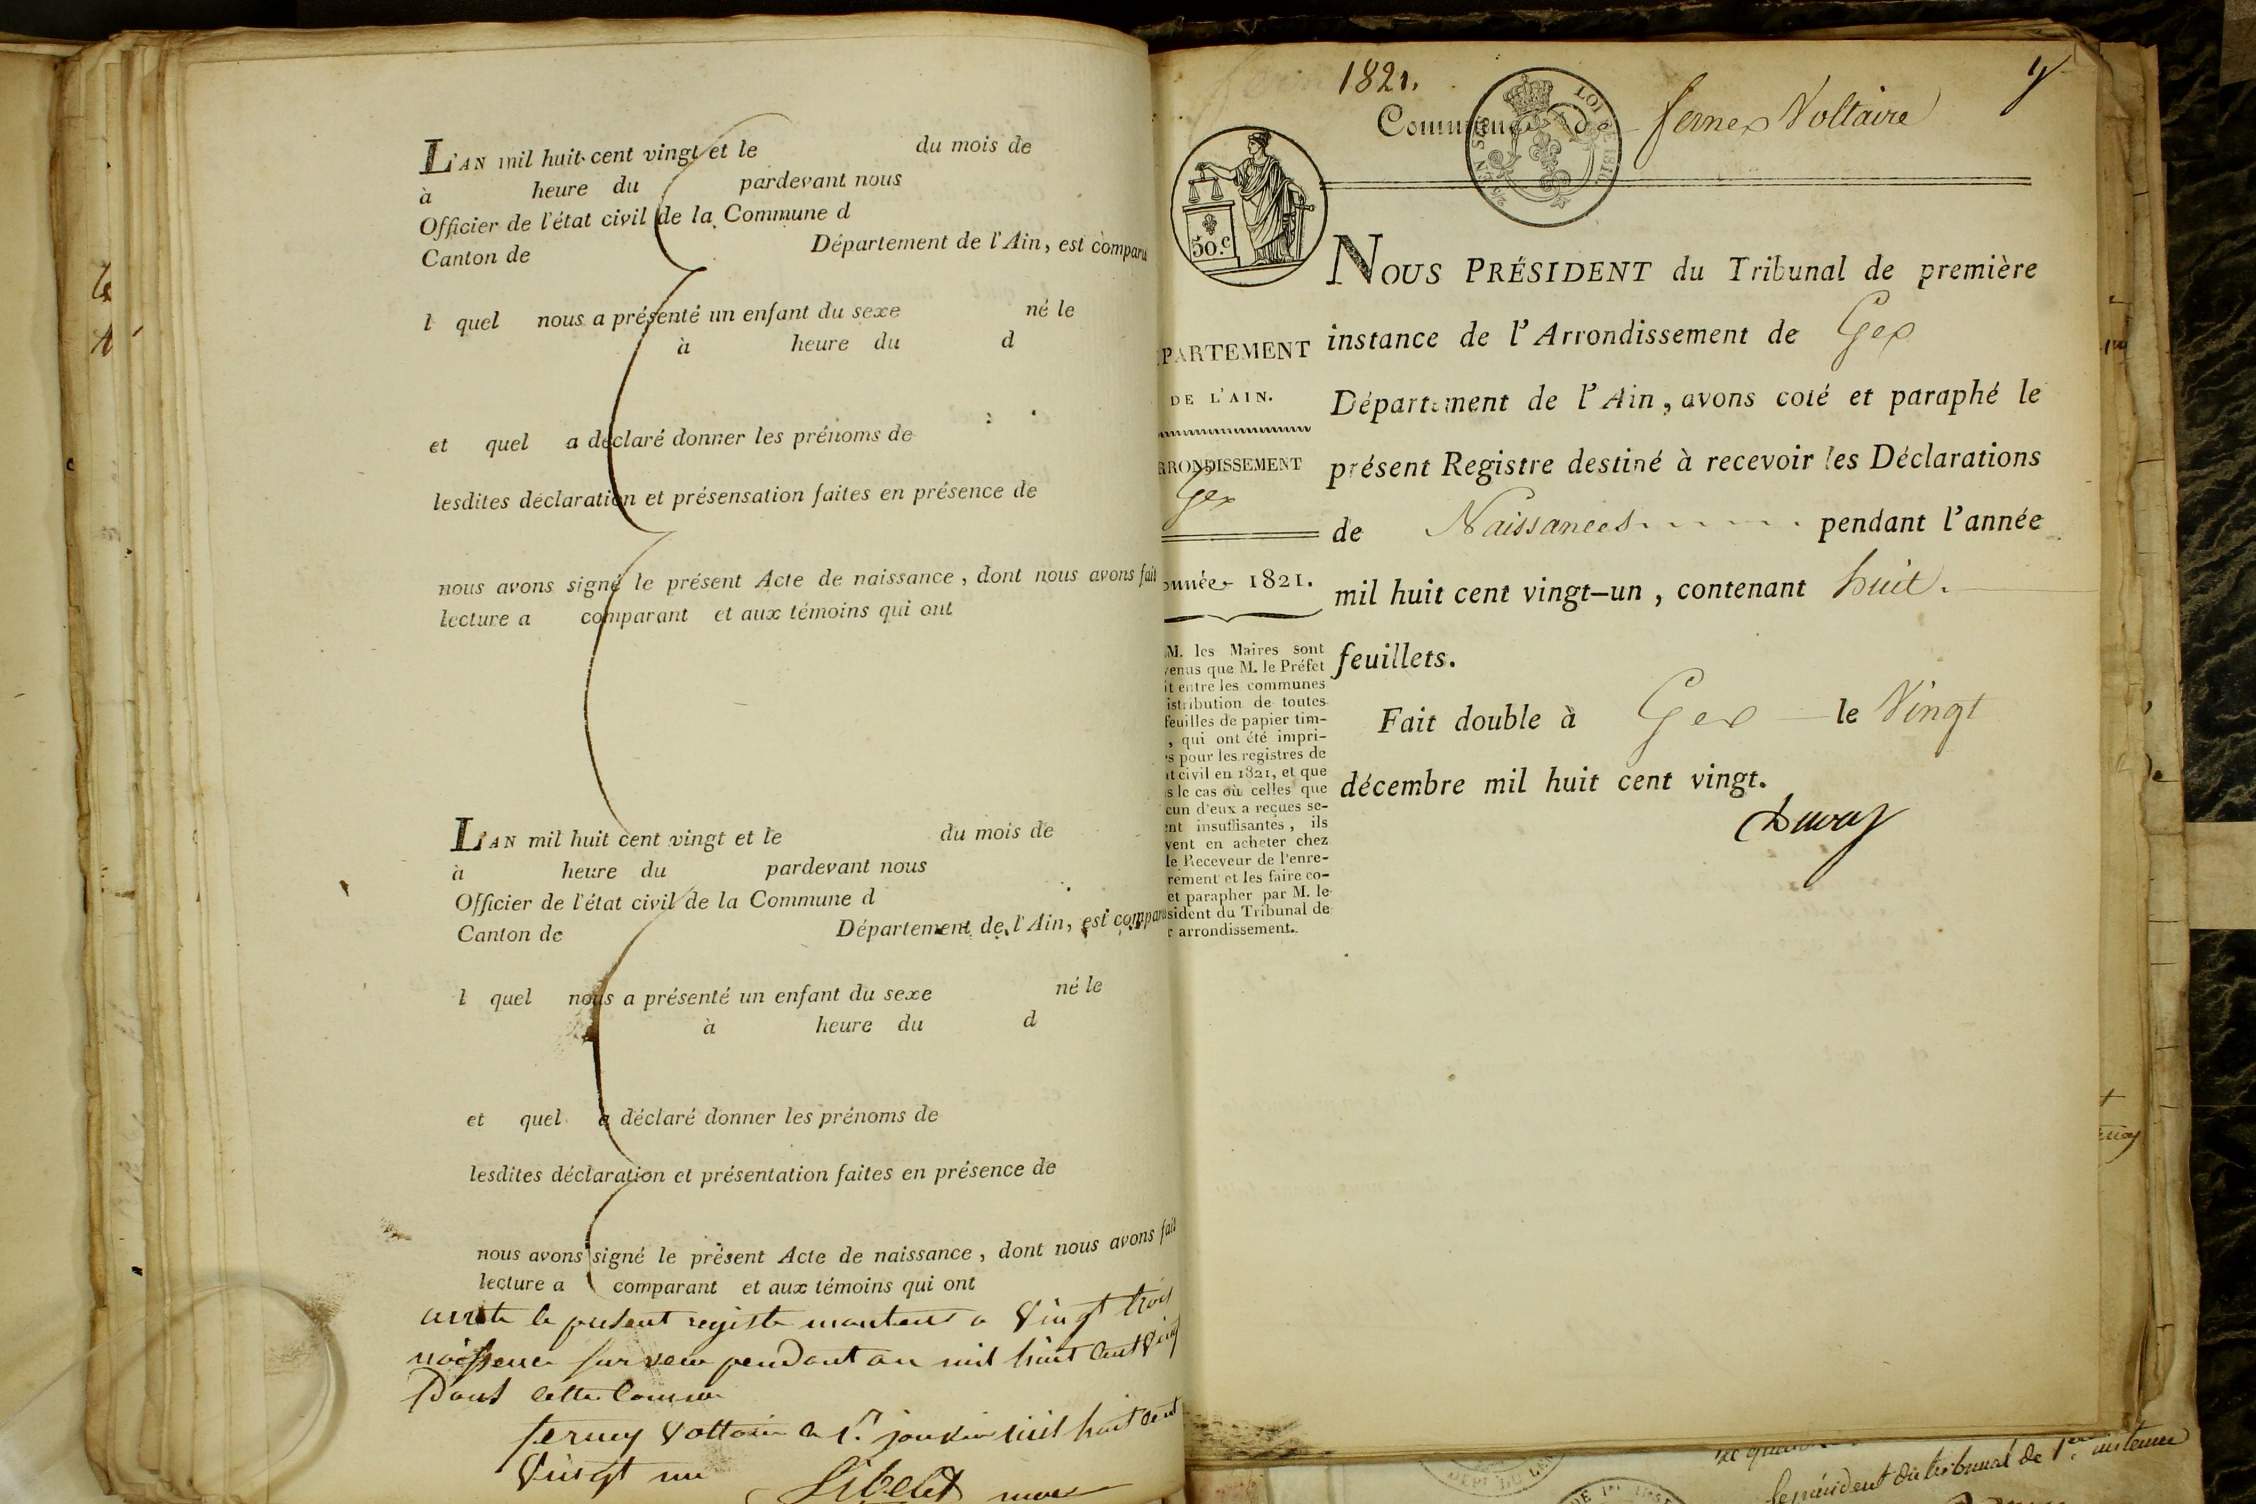 L'AN mil huit cent vingt et le du mois de
à heure du pardevant nous
Officier de l'état civil de la Commune d
Canton de Département de l'Ain, est comparu
l quel nous a présenté un enfant du sexe né le
à heure du d
et quel a déclaré donner les prénoms de
lesdites déclaration et présensation faites en présence de
nous avons signé le présent Acte de naissance, dont nous avons fait
lecture a comparant et aux témoins qui ont
L'AN mil huit cent vingt et le du mois de
à heure du pardevant nous
Officier de l'état civil de la Commune d
Canton de Département de l'Ain, est comparu
l quel nous a présenté un enfant du sexe né le
à heure du d
et quel a déclaré donner les prénoms de
lesdites déclaration et présentation faites en présence de
nous avons signé le présent Acte de naissance, dont nous avons fait
lecture a comparant et aux témoins qui ont
le present registre a Vingt trois
pendant an mil huit Cent Vingt
Dans cette
ferney Voltaire mil huit cent
Vingt un
1821.
Commune de fernex Voltaire
50.c
PARTEMENT
DE L'AIN.
RRONDISSEMENT
Gex
onnée 1821.
M. les Maires sont
venus que M. le Préfet
it entre les communes
istribution de toutes
feuilles de papier tim-
, qui ont été impri-
s pour les registres de
at civil en 1821, et que
s le cas où celles que
cun d'eux a reçues se-
ent insuffisantes, ils
vent en acheter chez
le Receveur de l'enre-
rement et les faire co-
et parapher par M. le
sident du Tribunal de
arrondissement.
NOUS PRÉSIDENT du Tribunal de première
instance de l'Arrondissement de Gex
Département de l'Ain, avons coté et paraphé le
présent Registre destiné à recevoir les Déclarations
de Naissances pendant l'année
mil huit cent vingt-un, contenant huit.
feuillets.
Fait double à Gex le Vingt
décembre mil huit cent vingt.
président du tribunal de 1ere instance